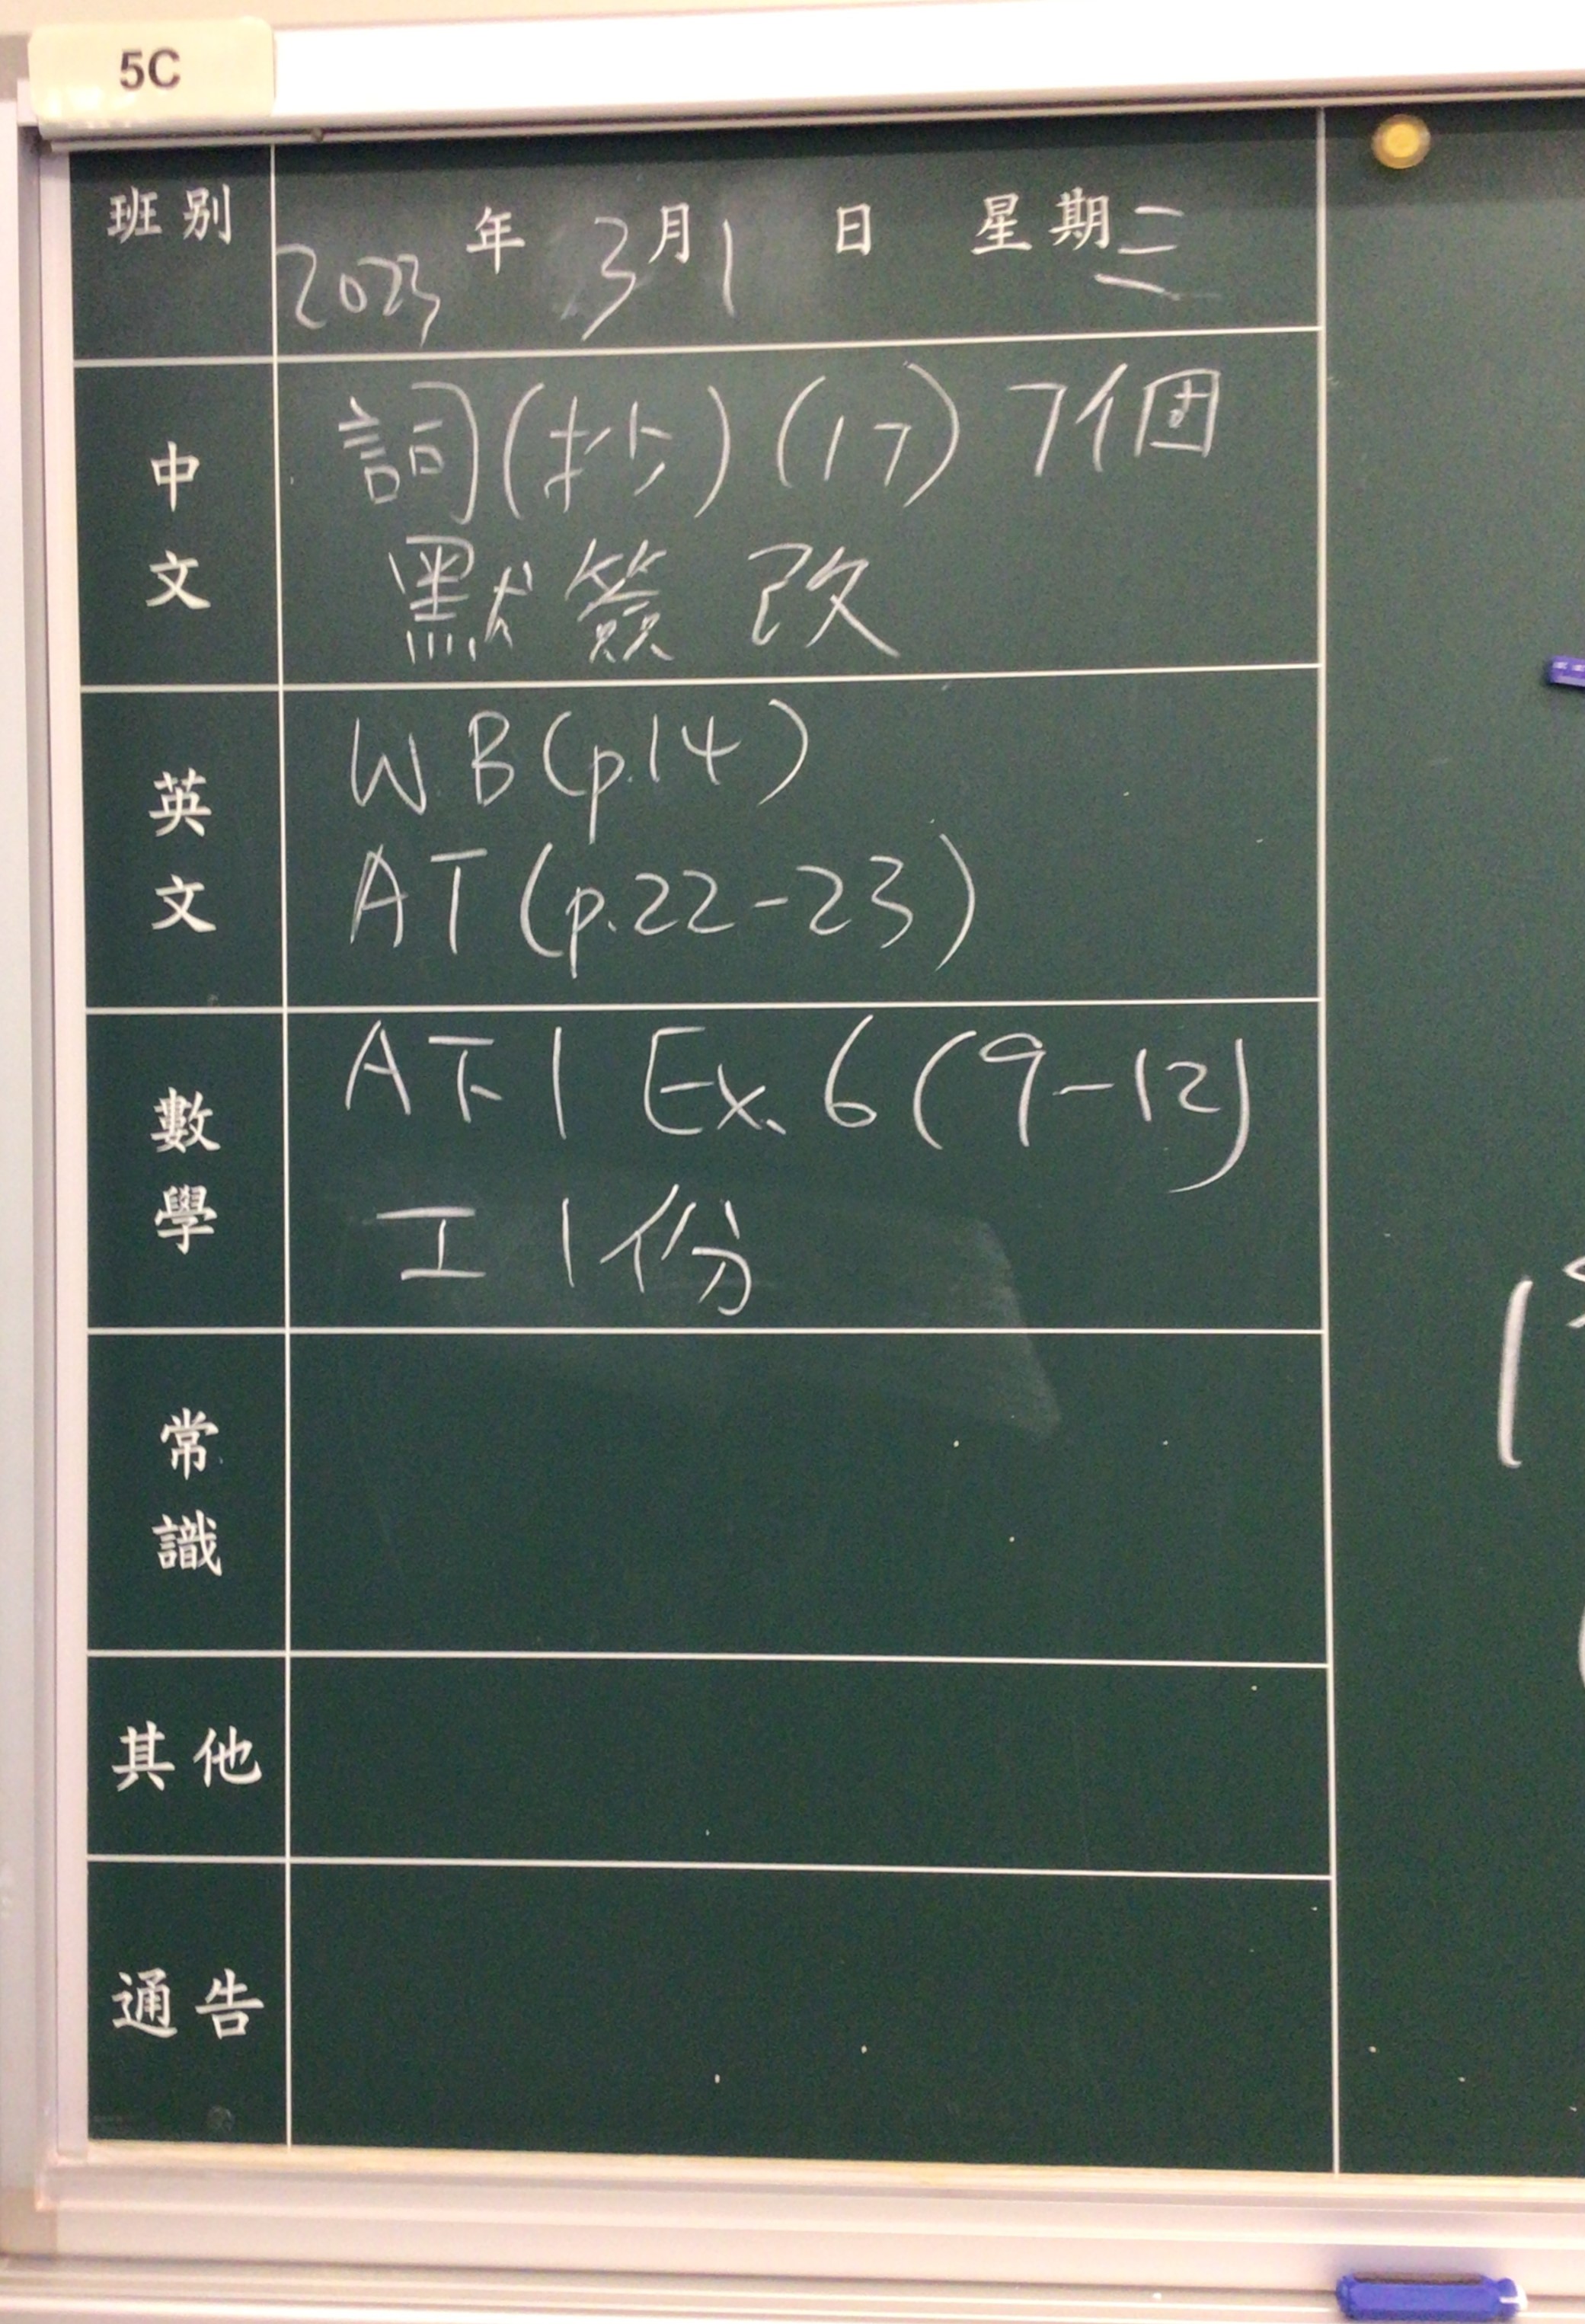 5C
班別 2023年 3月1日 星期三
中文 詞(抄) (17) 7個
默簽改
英文 WB(p.14)
AT(p.22-23)
數學 A下1 Ex.6(9-12)
工1份
常識
其他
通告